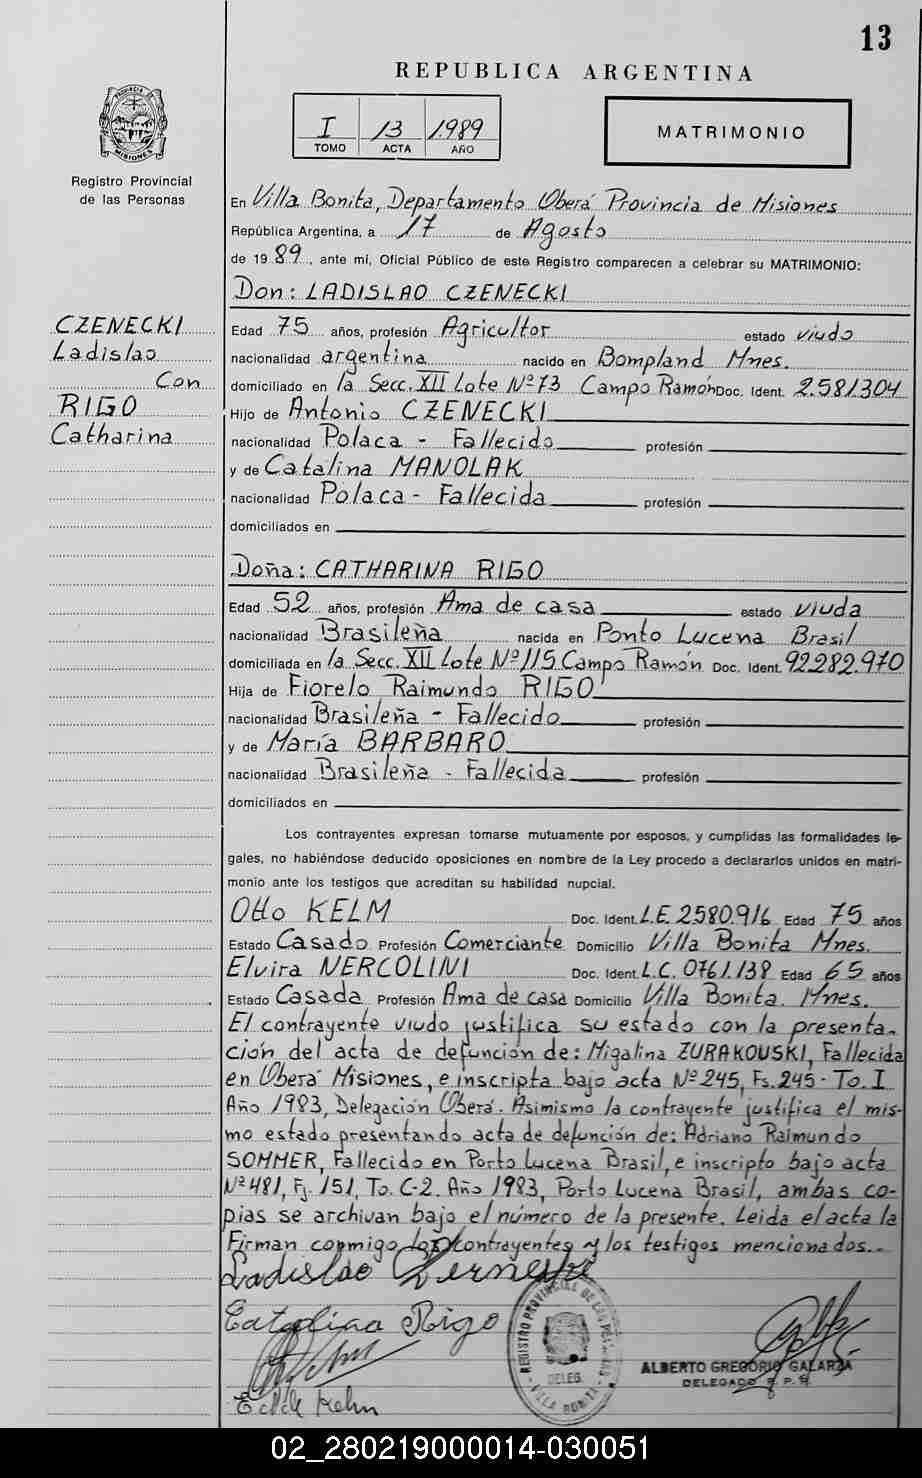 13
REPUBLICA ARGENTINA
I 13 1989
TOMO ACTA AÑO
MATRIMONIO
PROVINCIA DE MISIONES
Registro Provincial
de las Personas
En Villa Bonita, Departamento Oberá Provincia de Misiones
República Argentina, a 17 de Agosto
de 1989, ante mí, Oficial Público de este Registro comparecen a celebrar su MATRIMONIO:
Don: LADISLAO CZENECKI
CZENECKI
Ladislao
Con
RIGO
Catharina
Edad 75 años, profesión Agricultor estado viudo
nacionalidad argentina nacido en Bompland Mnes.
domiciliado en la Secc. XII Lote Nº 73 Campo Ramón Doc. Ident. 2.581.304
Hijo de Antonio CZENECKI
nacionalidad Polaca - Fallecido profesión
y de Catalina MANOLAK
nacionalidad Polaca - Fallecida profesión
domiciliados en
Doña: CATHARINA RIGO
Edad 52 años, profesión Ama de casa estado viuda
nacionalidad Brasileña nacida en Ponto Lucena Brasil
domiciliada en la Secc. XII Lote Nº 115 Campo Ramón Doc. Ident. 92.282.970
Hija de Fiorelo Raimundo RIGO
nacionalidad Brasileña - Fallecido profesión
y de María BARBARO
nacionalidad Brasileña - Fallecida profesión
domiciliados en
Los contrayentes expresan tomarse mutuamente por esposos, y cumplidas las formalidades le-
gales, no habiéndose deducido oposiciones en nombre de la Ley procedo a declararlos unidos en matri-
monio ante los testigos que acreditan su habilidad nupcial.
Otto KELM Doc. Ident. L.E. 2580.916 Edad 75 años
Estado Casado Profesión Comerciante Domicilio Villa Bonita Mnes.
Elvira NERCOLINI Doc. Ident. L.C. 0761.138 Edad 65 años
Estado Casada Profesión Ama de casa Domicilio Villa Bonita. Mnes.
El contrayente viudo justifica su estado con la presenta-
ción del acta de defunción de: Migalina ZURAKOUSKI, Fallecida
en Oberá Misiones, e inscripta bajo acta Nº 245, Fs. 245 - To. I
Año 1983, Delegación Oberá. Asimismo la contrayente justifica el mis-
mo estado presentando acta de defunción de: Adriano Raimundo
SOMMER, Fallecido en Porto Lucena Brasil, e inscripto bajo acta
Nº 481, Fj. 151, To. C-2. Año 1983, Porto Lucena Brasil, ambas co-
pias se archivan bajo el número de la presente. Leida el acta la
Firman conmigo los contrayentes y los testigos mencionados.-
Ladislao
Catalina Rigo
REGISTRO PROVINCIAL DE LAS PERSONAS
DELEG.
VILLA BONITA
ALBERTO GREGORIO GALARZA
DELEGADO R. P. S.
02_280219000014-030051